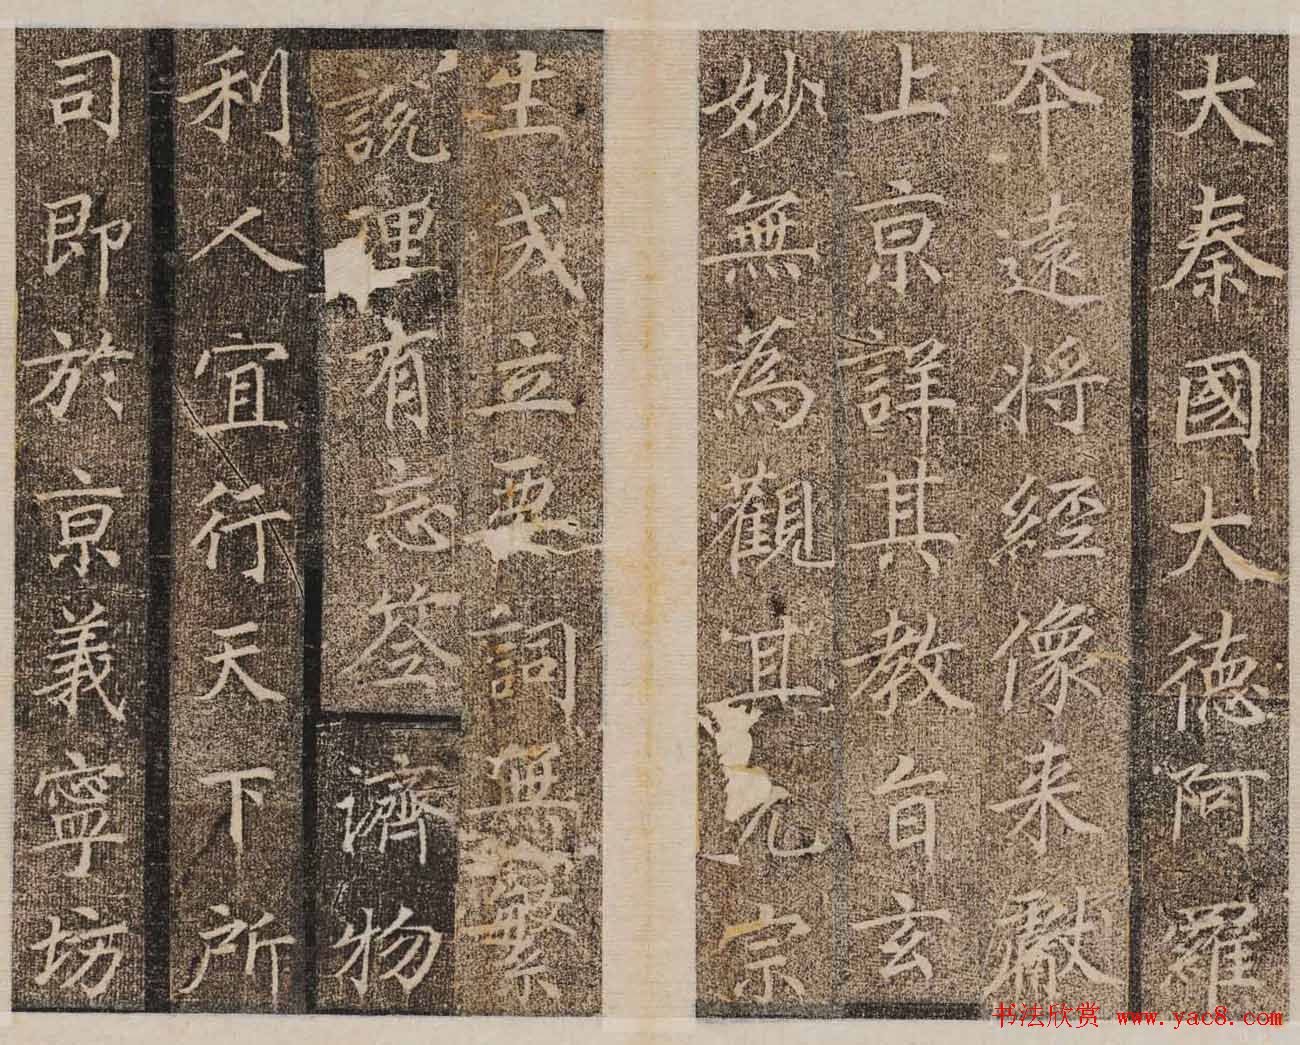 大秦國大德阿羅
本遠將經像来獻
上京詳其教旨玄
妙無為觀其元宗
生成立要詞無繁
説理有忘筌濟物
利人宜行天下所
司即於京義寧坊
书法欣赏 www.yac8.com